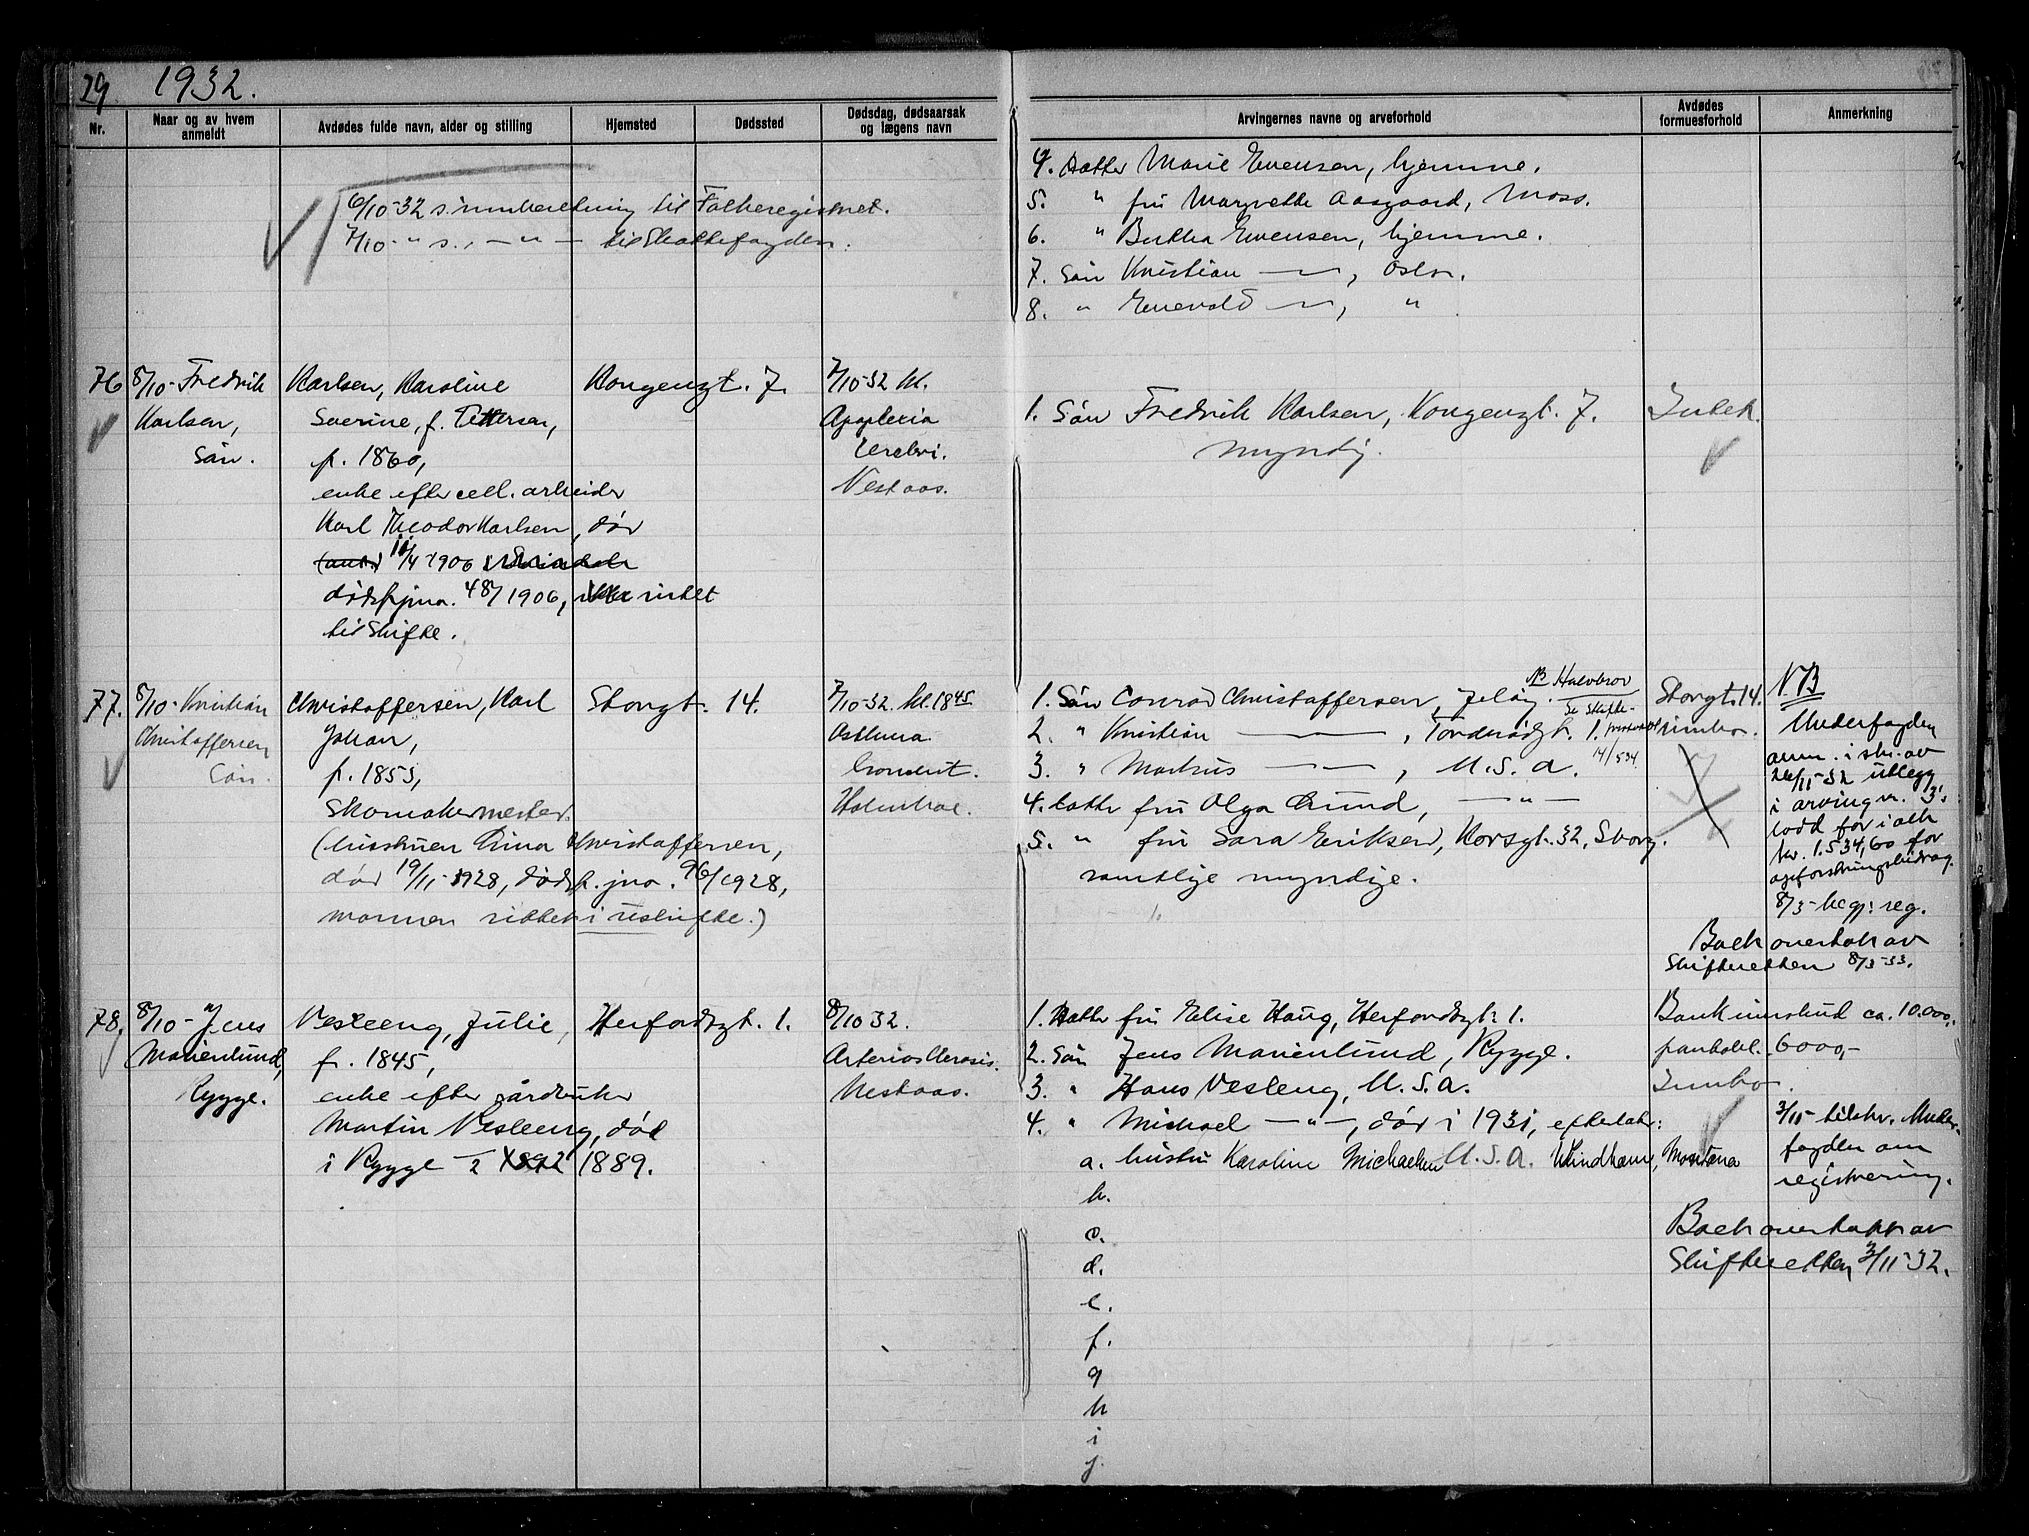 29. 1932.
Nr.
Naar og av hvem anmeldt
Avdødes fulde navn, alder og stilling
Hjemsted
Dødssted
Dødsdag, dødsaarsak og lægens navn
Arvingernes navne og arveforhold
Avdødes formuesforhold
Anmerkning
6/10-32 s. innberetning til Folkeregistret.
7/10- " s. , — " — til Skattefogden.
4. Datter Marie Evensen, hjemme.
5. " fru Margrethe Aasgaard, Moss.
6. " Bertha Evensen, hjemme.
7. Søn Kristian —"—, Oslo.
8. " Enevald —"—, "
76
8/10- Fredrik
Karlsen,
Søn.
Karlsen, Karoline
Severine, f. Pettersen,
f. 1860,
enke efter cell. arbeider
Karl Theodor Karlsen, død
11/4 1906
dødsfjna. 48/1906, ikke
til Skifte.
Kongensgt. 7.
7/10-32 kl.
Apoplexia
Cerebri.
Nestaas.
1. Søn Fredrik Karlsen, Kongensgt. 7.
myndig.
Intet.
77.
8/10- Kristian
Christoffersen
Søn.
Christoffersen, Karl
Johan,
f. 1853,
Skomakermester.
(hustruen Lina Christoffersen,
død 19/11-1928, dødsf. jna. 96/1928,
mannen sittet i uskifte.)
Storgt. 14.
7/10-32. kl. 18 45
Asthma
bronchit.
Holmboe.
1. Søn Conrad Christoffersen, Jeløy.
NB Halvbror
Se Skifte-
protokol
14/534
2. " Kristian —"—, Tordenrødgt. 1.
3. " Markus —"—, U.S.A.
4. Datter fru Olga Lund, —"—
5. " fru Sara Eriksen, Korsgt. 32, Sborg.
samtlige myndige.
Storgt. 14.
innbo.
NB
Underfogden
anm. i skr. av
26/11-32 utlegg
i arving nr. 3's
lodd for i alt
kr. 1.534,60 for
opfostringsbidrag.
8/3- begj. reg.
Boet overtatt av
Skifteretten 8/3-33.
78.
8/10- Jens
Marienlund,
Rygge.
Vesteeng, Julie,
f. 1845,
enke efter gårdbruker
Martin Vesteeng, død
i Rygge 1889.
Herfordsgt. 1.
8/10 32.
Arteriosclerosis.
Nestaas.
1. Datter fru Elise Haug, Herfordsgt. 1.
2. Søn Jens Marienlund, Rygge.
3. " Hans Vesteng, U.S.A.
4. " Michael —"—, død i 1931, efterlatt:
a. hustru Karoline Michaelsen U.S.A. Windham, Montana
b.
c.
d.
e.
f.
g
h
i
j.
Bankinnskud ca. 10.000,-
pantobl. 6000,-
Innbo.
3/11- tilskr. Under-
fogden om
registrering.
Boet overtatt av
Skifteretten 3/11-32.